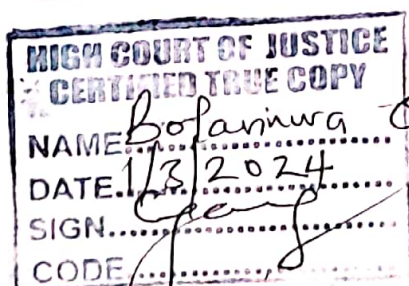 HIGH COURT OF JUSTICE
CERTIFIED TRUE COPY
NAME
DATE 1/3/2024
SIGN
CODE